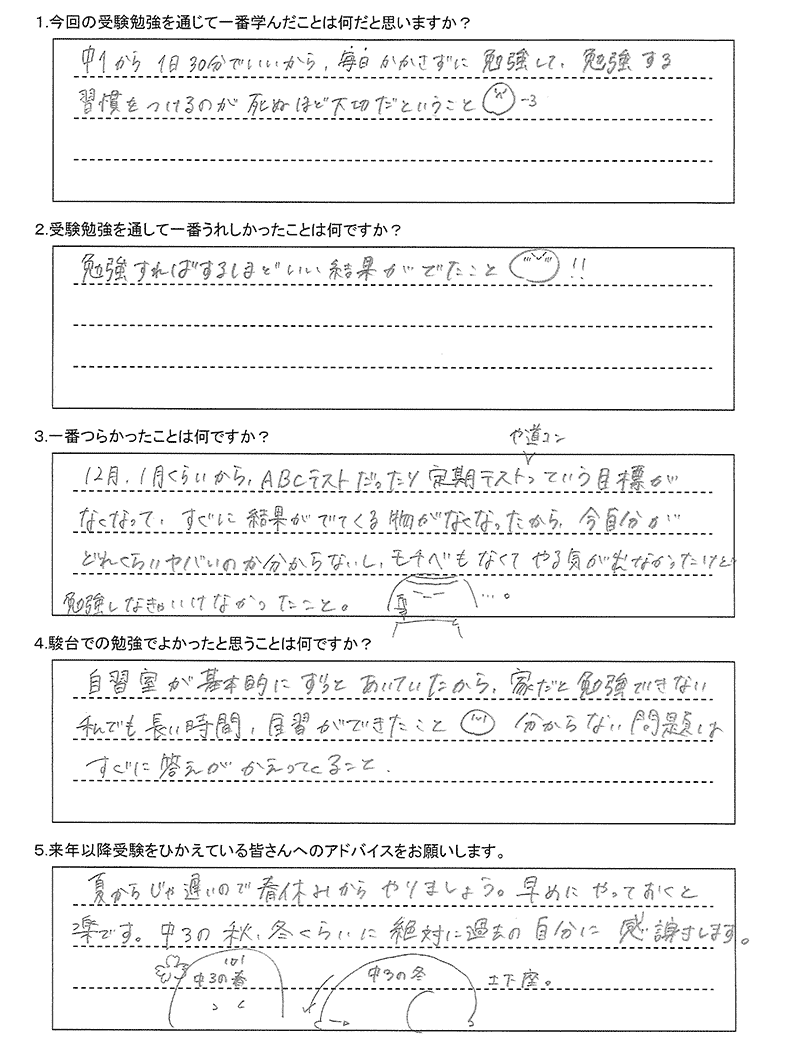 1.今回の受験勉強を通じて一番学んだことは何だと思いますか？
中1から1日30分でいいから、毎日かかさずに勉強して、勉強する
習慣をつけるのが死ぬほど大切だということ
2.受験勉強を通して一番うれしかったことは何ですか？
勉強すればするほどいい結果がでたこと!!
3.一番つらかったことは何ですか？
や道コン
12月、1月くらいから、ABCテストだったり定期テストっていう目標が
なくなって、すぐに結果がでてくる物がなくなったから、今自分が
どれくらいヤバいのか分からないし、モチベもなくてやる気が出なかったけど
勉強しなきゃいけなかったこと。…。
4.駿台での勉強でよかったと思うことは何ですか？
自習室が基本的にずっとあいていたから、家だと勉強できない
私でも長い時間、自習ができたこと 分からない問題は
すぐに答えがかえってくること.
5.来年以降受験をひかえている皆さんへのアドバイスをお願いします。
夏からじゃ遅いので春休みからやりましょう。早めにやっておくと
楽です。中3の秋、冬くらいに絶対に過去の自分に感謝します。
中3の春 中3の冬 土下座。